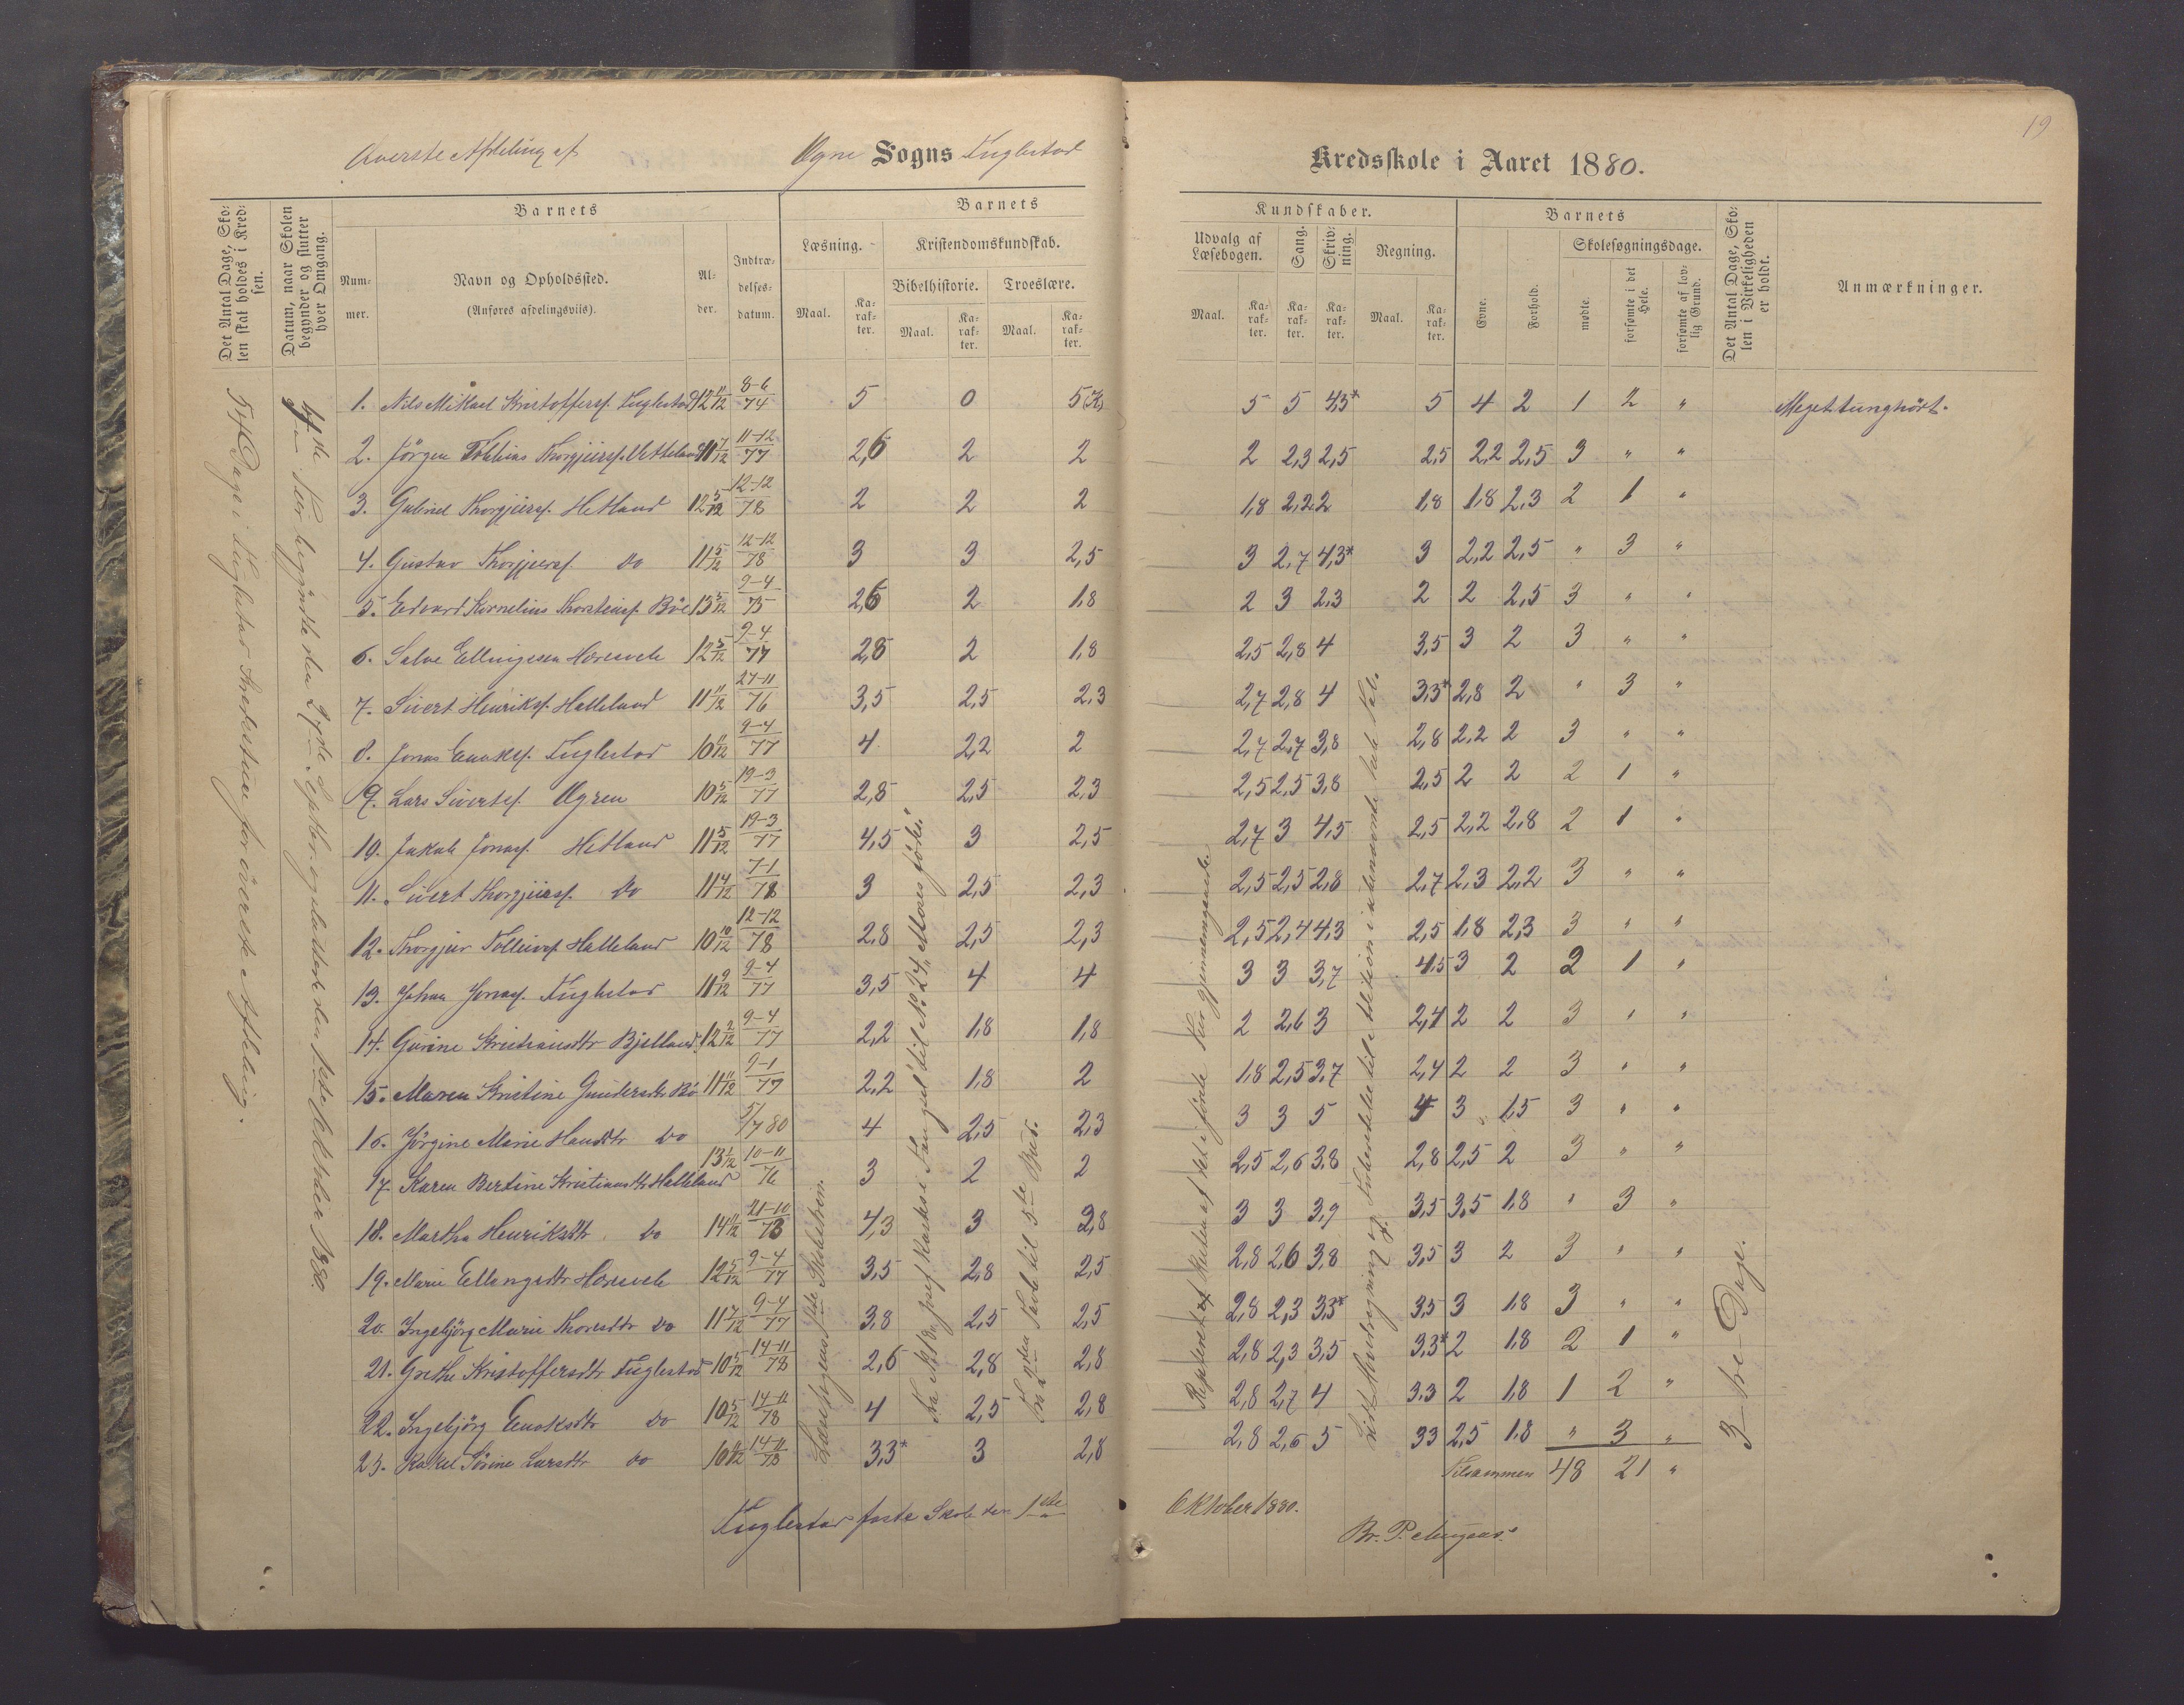 19
Øverste Afdeling af Ogne Sogns Fuglestad Kredsskole i Aaret 1880.
Det Antal Dage, Skolen skal holdes i Kredsen.
Datum, naar Skolen begynder og slutter hver Omgang.
Barnets
Nummer.
Navn og Opholdssted.
(Anføres afdelingsviis).
Alder.
Indtrædelsesdatum.
Barnets Kundskaber.
Læsning.
Kristendomskundskab.
Bibelhistorie.
Troeslære.
Udvalg af Læsebogen.
Sang.
Skrivning.
Regning.
Maal.
Karakter.
Maal.
Karakter.
Maal.
Karakter.
Maal.
Karakter.
Karakter.
Karakter.
Maal.
Karakter.
Barnets
Evne.
Forhold.
Skolesøgningsdage.
mødte.
forsømte i det Hele.
forsømte af lovlig Grund.
Det Antal Dage, Skolen i Virkeligheden er holdt.
Anmærkninger.
1. Nils Mikael Kristoffers. Fuglestad 12 11/12 8-6/74 5 0 5 5 5 4,3* 5 4 2 1 2 " Meget tunghört.
2. Jörgen Thorgjeirs. 11 7/12 11-12/77 2,6 2 2 2 2,3 2,5 2,5 2,2 2,5 3 " "
3. Gabriel Thorgjeirs. Hetland 12 5/12 12-12/78 2 2 2 1,8 2,2 2 1,8 1,8 2,3 2 1 "
4. Gustav Thorgjeirs. Do 11 5/12 12-12/78 3 3 2,5 3 2,7 4,3* 3 2,2 2,5 " 3 "
5. Edvard Kornelius Thorsteins. Böe 13 5/12 9-4/75 2,6 2 1,8 2 3 2,3 2 2 2,5 3 " "
6. Salve Ellingsen 12 5/12 9-4/77 2,8 2 1,8 2,5 2,8 4 3,5 3 2 3 " "
7. Sivert Henriks. Helleland 11 11/12 27-11/76 3,5 2,5 2,3 2,7 2,8 4 3,3* 2,8 2 " 3 "
8. Jonas Enoks. Fuglestad 10 11/12 9-4/77 4 2,2 2 2,7 2,7 3,8 2,8 2,2 2 3 " "
9. Lars Siverts. Ogren 10 5/12 19-3/77 2,8 2,5 2,3 2,5 2,5 3,8 2,5 2 2 2 1 "
10. Jakob Jonas. Hetland 11 5/12 19-3/77 4,5 3 2,5 2,7 3 4,5 2,5 2,2 2,8 2 1 "
11. Sivert Thorgjeirs. Do 11 4/12 7-1/78 3 2,5 2,3 2,5 2,5 2,8 2,7 2,3 2,2 3 " "
12. Thorgjer Tolleivs. Helleland 10 10/12 12-12/78 2,8 2,5 2,3 2,5 2,4 4,3 2,5 1,8 2,3 3 " "
13. Johan Jonas. Fuglestad 11 9/12 9-4/77 3,5 4 4 3 3 3,7 4,5 3 2 2 1 "
14. Gurine Kristiansdtr Bjelland 12 2/12 9-4/77 2,2 1,8 1,8 2 2,6 3 2,4 2 2 3 " "
15. Maren Kristine Gundersdtr Bö 11 11/12 9-1/77 2,2 1,8 2 1,8 2,5 3,7 2,4 2 2 3 " "
16. Jörgine Marie Hansdtr Do 5/7 80 4 2,5 2,3 3 3 5 4 3 1,5 3 " "
17. Karen Bertine Kristiansdtr Helleland 13 1/12 10-11/76 3 2 2 2,5 2,6 3,8 2,8 2,5 2 3 " "
18. Martha Henriksdtr. Do 14 11/12 21-10/73 4,3 3 2,8 3 3 3,9 3,5 3,5 1,8 " 3 "
19. Marie Ellingsdtr 12 5/12 9-4/77 3,5 2,8 2,5 2,8 2,6 3,8 3,5 3 2 3 " "
20. Ingebjörg Marie Thorsdtr Do 11 7/12 9-4/77 3,8 2,5 2,5 2,8 2,3 3,3* 3,5 3 1,8 3 " "
21. Grethe Kristoffersdtr Fuglestad 10 5/12 14-11/78 2,6 2,8 2,8 2,8 2,3 3,5 3,3* 2 1,8 2 1 "
22. Ingebjörg Enoksdtr Do 10 5/12 14-11/78 4 2,5 2,8 2,8 2,7 4 3,3 2 1,8 1 2 "
23. Rakel Sörine Larsdtr Do 10 11/12 14-11/78 3,3* 3 2,8 2,8 2,6 5 3,3 2,5 1,8 " 3 "
Tilsammen 48 21 "
54 Dage i Fuglestad Skolestue for överste Afdeling.
4de Kur begyndte den 27de Septbr. og sluttede den 1ste Oktober 1880.
Læsebogens 1ste Skoletrin.
Fra No. "Josef kastes i Fængsel" til No. 24 "Moses föde."
Fra 2den Tavle til 5te Bud.
Repeteret af det i förste Kur gjennemgaaede.
Lidt Hovedregning og
3 – tre – Dage.
Fuglestad faste Skole den 1ste Oktober 1880.